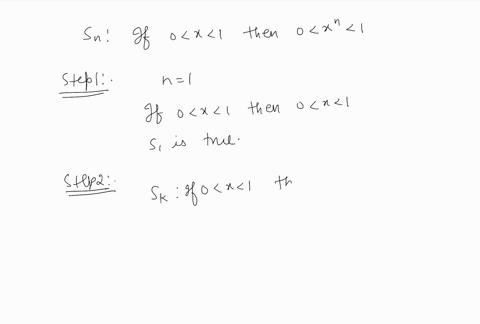 Sn: If 0<x<1 then 0<xⁿ<1
Step1:. n=1
If 0<x<1 then 0<x<1
S₁ is true.
Step2:. Sₖ: If 0<x<1 th